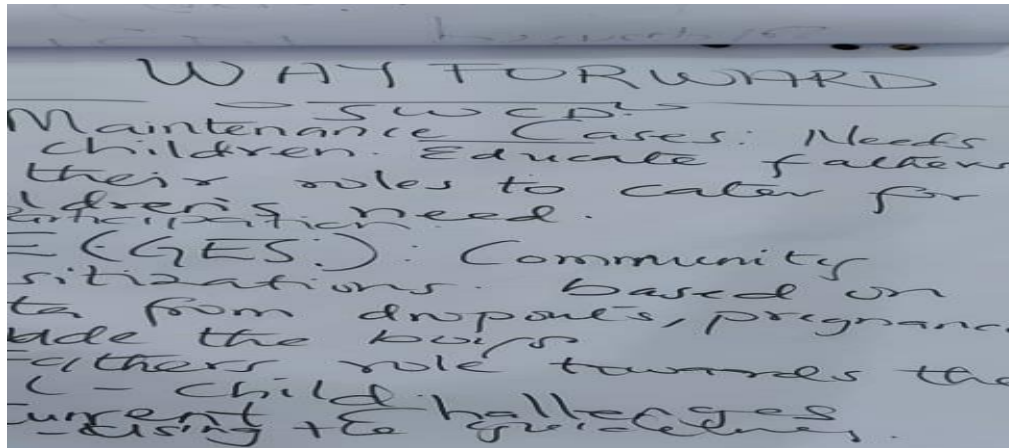 WAY FORWARD
SWCD
Maintenance Cases: Needs
children. Educate fathers
their roles to cater for
ldren's need.
articipation
E (GES): Community
sitizations. based on
ta from dropouts, pregnanc
ude the boys
Fathers role towards the
C - Child
current challenges
using the guidelines.